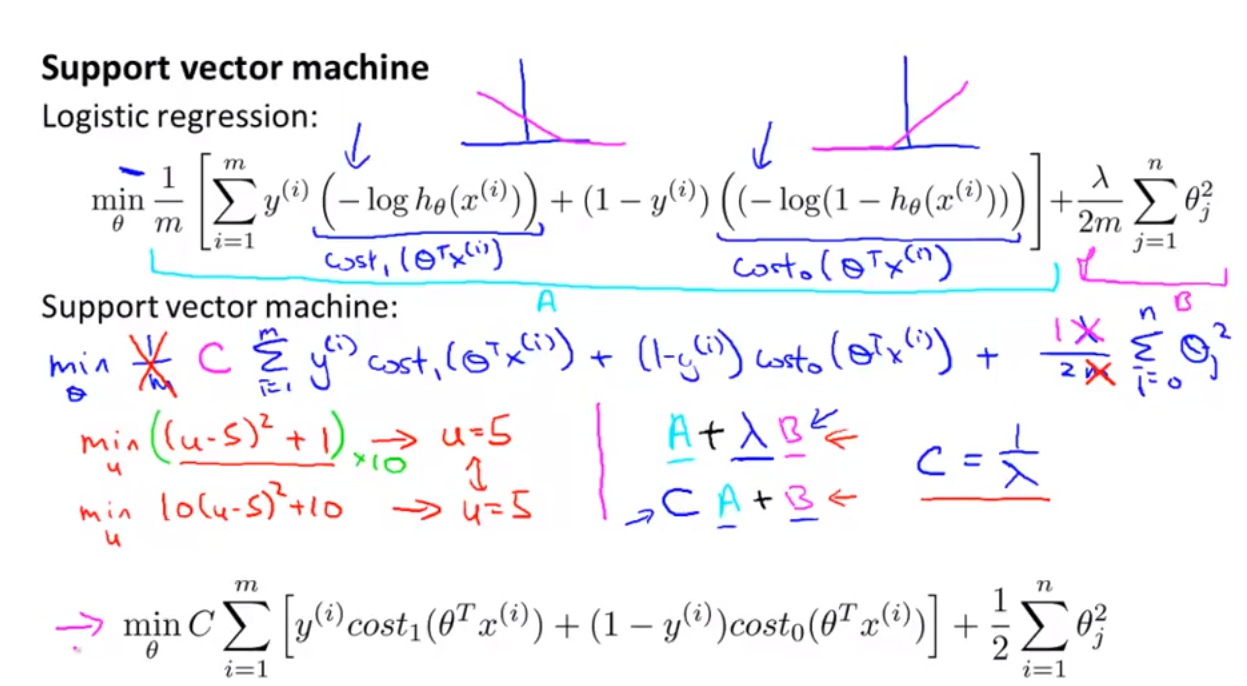 Support vector machine
Logistic regression:
min_θ 1/m [ Σ_{i=1}^{m} y^{(i)} (−log h_θ(x^{(i)})) + (1 − y^{(i)}) ((−log(1 − h_θ(x^{(i)}))) ] + λ/2m Σ_{j=1}^{n} θ_j^2
cost_1(θ^T x^{(i)}) cost_0(θ^T x^{(i)})
A B
Support vector machine:
min_θ 1/m C Σ_{i=1}^{m} y^{(i)} cost_1(θ^T x^{(i)}) + (1-y^{(i)}) cost_0(θ^T x^{(i)}) + 1 λ/2m Σ_{i=0}^{n} θ_j^2
min_u ((u-5)^2 + 1) ×10 → u=5
A + λ B ←
C = 1/λ
min_u 10(u-5)^2+10 → u=5
→ C A + B ←
→ min_θ C Σ_{i=1}^{m} [ y^{(i)} cost_1(θ^T x^{(i)}) + (1 − y^{(i)}) cost_0(θ^T x^{(i)}) ] + 1/2 Σ_{i=1}^{n} θ_j^2